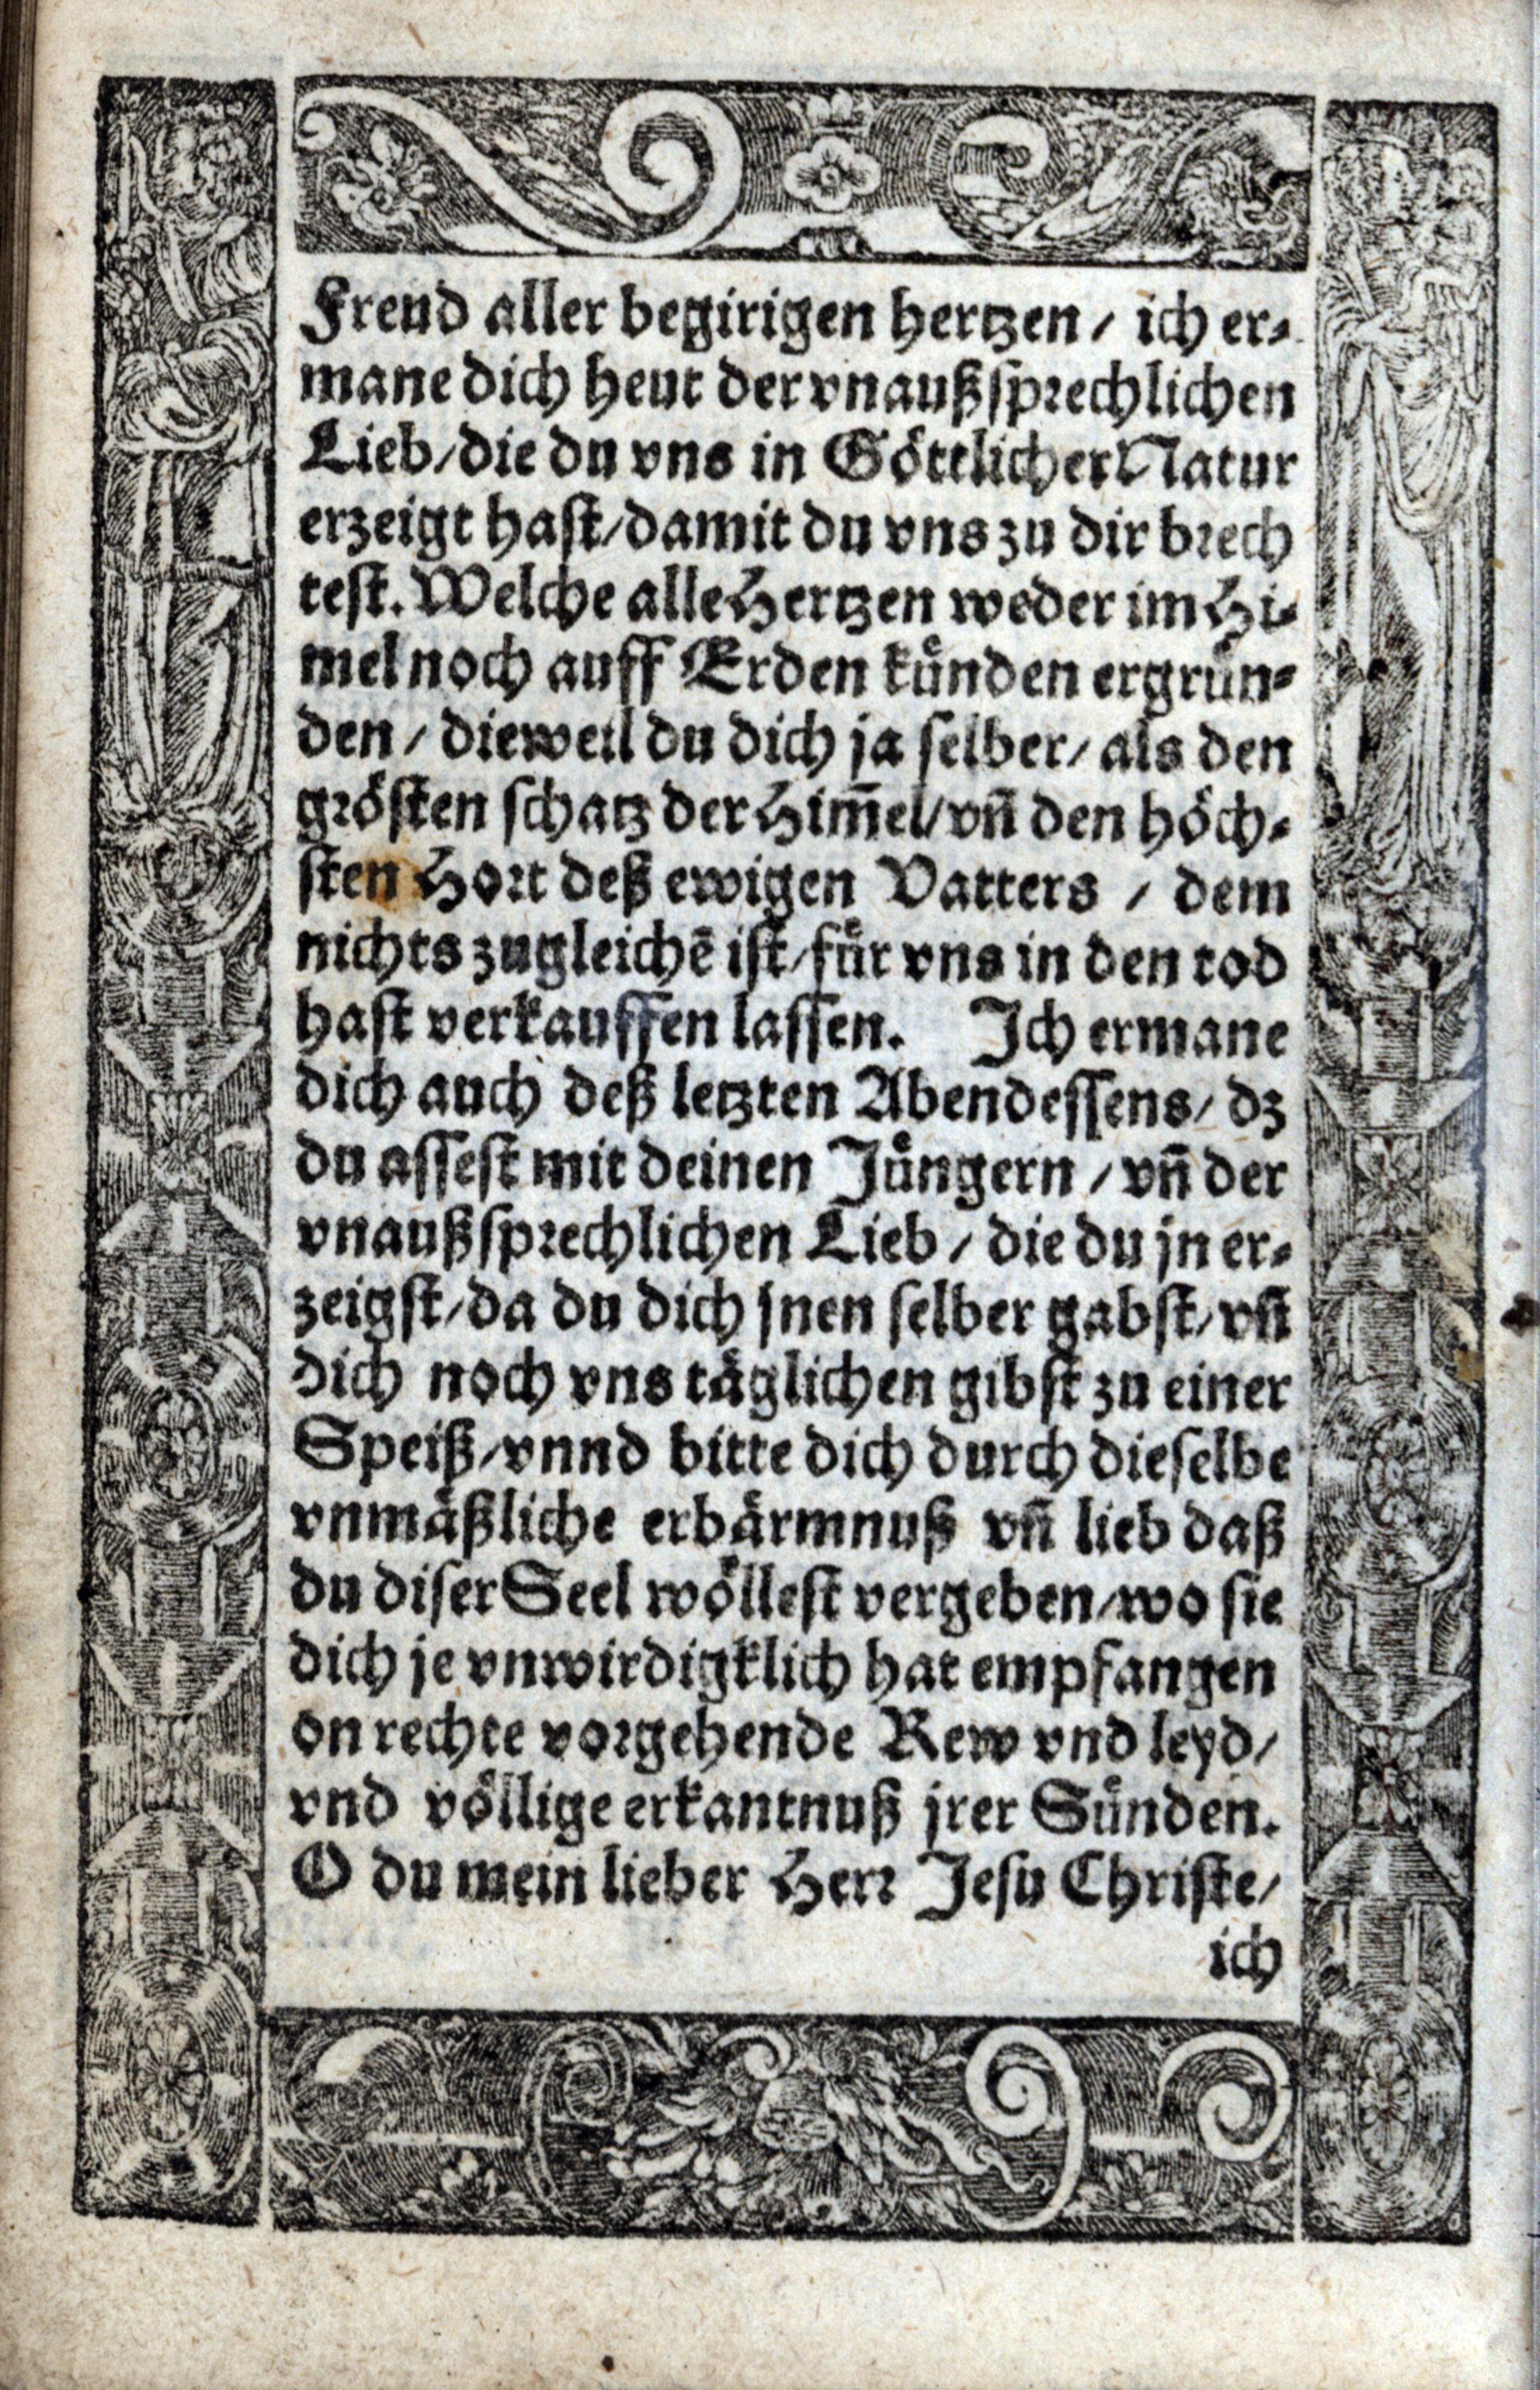 Freud aller begirigen hertzen / ich er-
mane dich heut der vnaußsprechlichen
Lieb/die du vns in Göttlicher Natur
erzeigt hast/damit du vns zu dir brech
test. Welche alle Hertzen weder im Hi-
mel noch auff Erden künden ergrün-
den / dieweil du dich ja selber/ als den
grösten schatz der Him̄el/vn̄ den höch-
sten Hort deß ewigen Vatters / dem
nichts zugleichē ist/für vns in den tod
hast verkauffen lassen. Ich ermane
dich auch deß letzten Abendessens/ dz
du assest mit deinen Jüngern / vn̄ der
vnaußsprechlichen Lieb / die du jn er-
zeigst/da du dich jnen selber gabst/vn̄
dich noch vns täglichen gibst zu einer
Speiß/vnnd bitte dich durch dieselbe
vnmäßliche erbärmnuß vn̄ lieb daß
du diser Seel wöllest vergeben/wo sie
dich je vnwirdigklich hat empfangen
on rechte vorgehende Rew vnd leyd/
vnd völlige erkantnuß jrer Sünden.
O du mein lieber Herr Jesu Christe/
ich